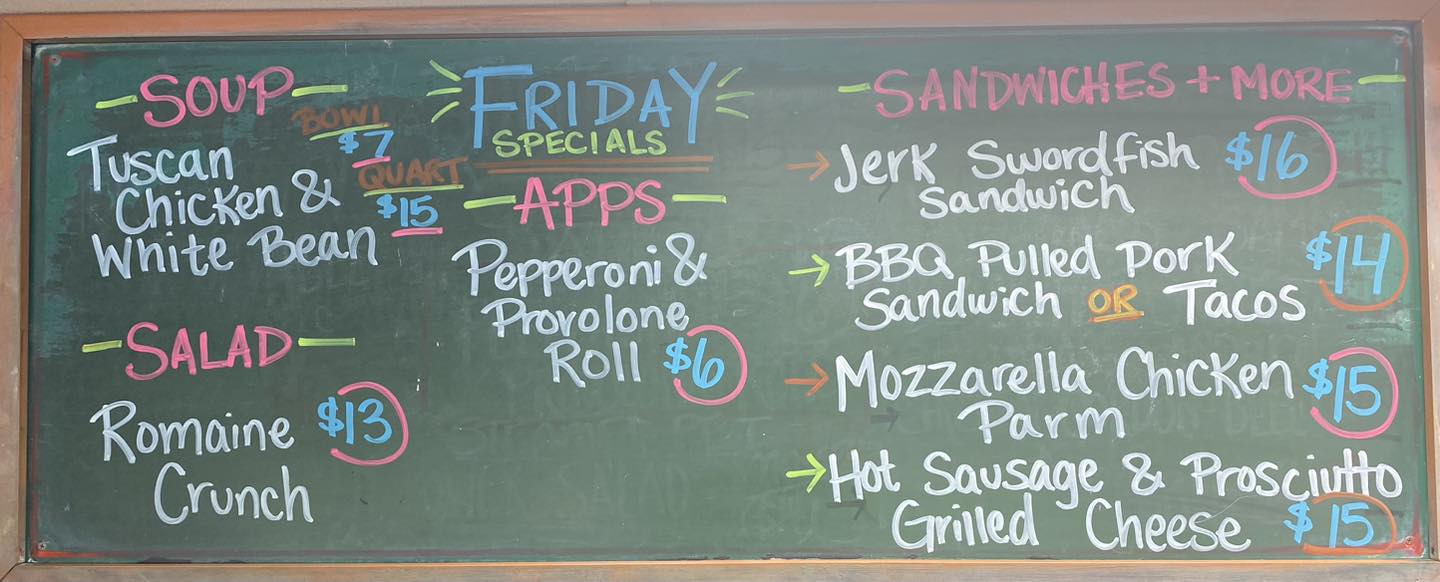 SOUP
BOWL
$7
QUART
$15
Tuscan
Chicken &
White Bean
SALAD
Romaine $13
Crunch
FRIDAY
SPECIALS
APPS
Pepperoni &
Provolone
Roll $6
SANDWICHES + MORE
Jerk Swordfish $16
Sandwich
BBQ Pulled Pork $14
Sandwich OR Tacos
Mozzarella Chicken $15
Parm
Hot Sausage & Prosciutto
Grilled Cheese $15